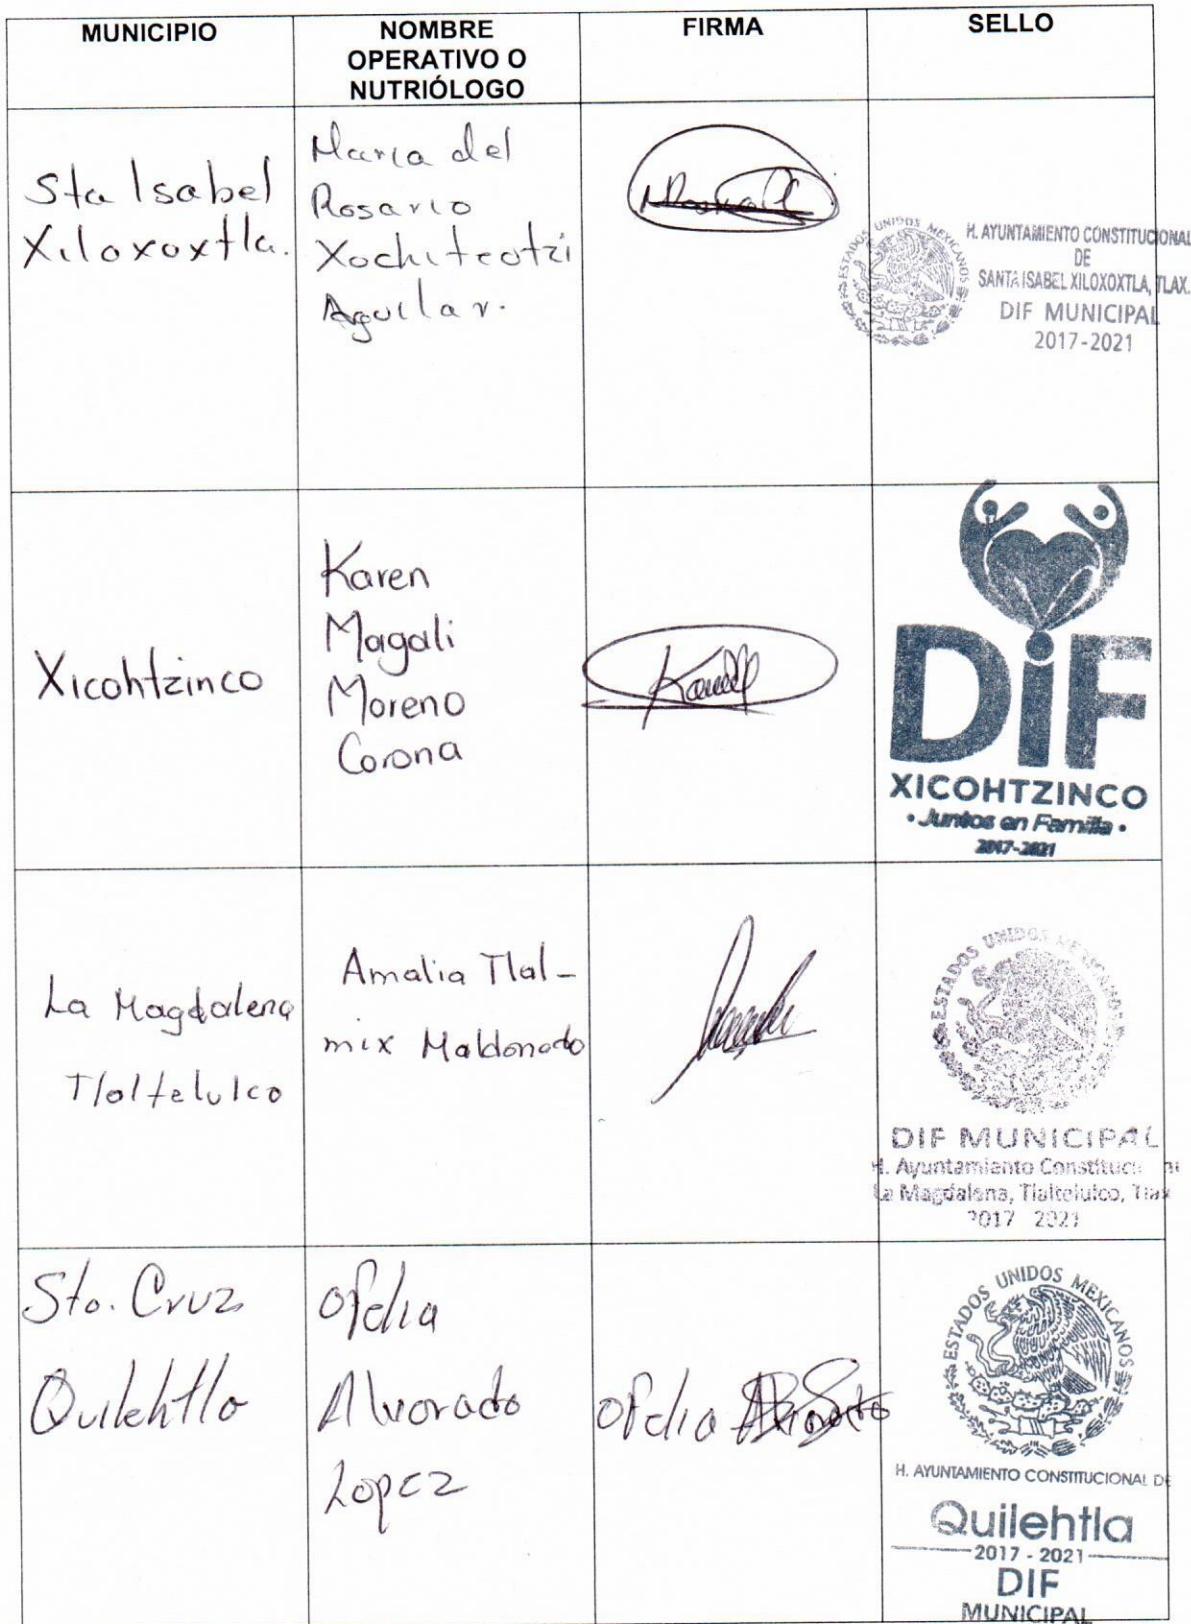 MUNICIPIO
NOMBRE
OPERATIVO O
NUTRIÓLOGO
FIRMA
SELLO
Sta Isabel
Xiloxoxtla.
Maria del
Rosario
Xochiteotzi
Aguilar.
ESTADOS UNIDOS MEXICANOS
H. AYUNTAMIENTO CONSTITUCIONAL
DE
SANTA ISABEL XILOXOXTLA, TLAX.
DIF MUNICIPAL
2017-2021
Xicohtzinco
Karen
Magali
Moreno
Corona
DIF
XICOHTZINCO
• Juntos en Familia •
2017-2021
La Magdalena
Tlaltelulco
Amalia Tlal-
mix Maldonado
ESTADOS UNIDOS MEXICANOS
DIF MUNICIPAL
H. Ayuntamiento
La Magdalena, Tlaltelulco, Tlax
2017 2021
Sta. Cruz
Quilehtla
Ofelia
Alvarado
Lopez
Ofelia
ESTADOS UNIDOS MEXICANOS
H. AYUNTAMIENTO CONSTITUCIONAL DE
Quilehtla
2017 - 2021
DIF
MUNICIPAL